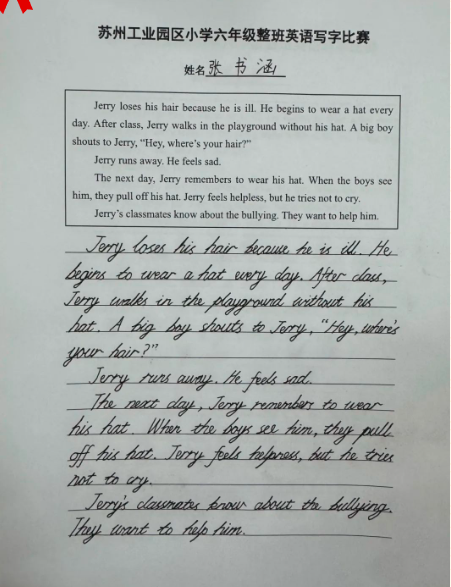 苏州工业园区小学六年级整班英语写字比赛
姓名 张 书 涵
Jerry loses his hair because he is ill. He begins to wear a hat every
day. After class, Jerry walks in the playground without his hat. A big boy
shouts to Jerry, “Hey, where’s your hair?”
Jerry runs away. He feels sad.
The next day, Jerry remembers to wear his hat. When the boys see
him, they pull off his hat. Jerry feels helpless, but he tries not to cry.
Jerry’s classmates know about the bullying. They want to help him.
Jerry loses his hair because he is ill. He
begins to wear a hat every day. After class,
Jerry walks in the playground without his
hat. A big boy shouts to Jerry, “Hey, where’s
your hair?”
Jerry runs away. He feels sad.
The next day, Jerry remembers to wear
his hat. When the boys see him, they pull
off his hat. Jerry feels helpness, but he tries
not to cry.
Jerry’s classmates know about the bullying.
They want to help him.